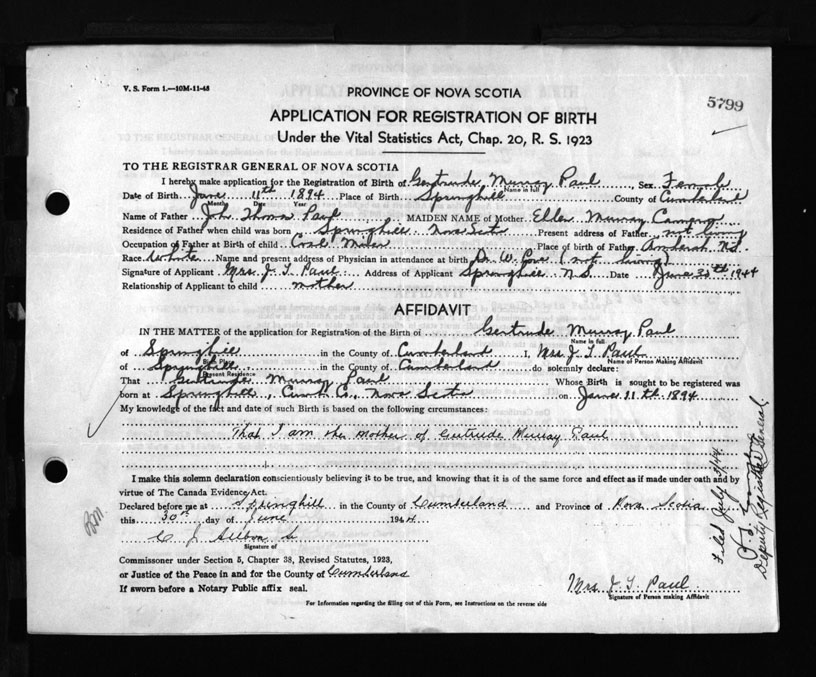 V. S. Form 1.—10M-11-43
PROVINCE OF NOVA SCOTIA
5799
APPLICATION FOR REGISTRATION OF BIRTH
Under the Vital Statistics Act, Chap. 20, R. S. 1923
TO THE REGISTRAR GENERAL OF NOVA SCOTIA
I hereby make application for the Registration of Birth of Gertrude Murray Paul Sex Female
Name in full
Date of Birth 11th 1894 Place of Birth Springhill County of Cumberland
Month Date Year
Name of Father John Thomas Paul MAIDEN NAME of Mother Ellen Murray Cameron
Residence of Father when child was born Springhill Nova Scotia Present address of Father not living
Occupation of Father at Birth of child Coal Miner Place of birth of Father Amherst N.S.
Race White Name and present address of Physician in attendance at birth Dr. W. (not living)
Signature of Applicant Mrs. J. T. Paul Address of Applicant Springhill N.S. Date June 1944
Relationship of Applicant to child mother
AFFIDAVIT
IN THE MATTER of the application for Registration of the Birth of Gertrude Murray Paul
Name in full
of Springhill in the County of Cumberland I, Mrs. J. T. Paul
Birth Place Name of Person Making Affidavit
of Springhill in the County of Cumberland do solemnly declare:
Present Residence
That Gertrude Murray Paul Whose Birth is sought to be registered was
born at Springhill, Cumb. Co., Nova Scotia on 11th. 1894
My knowledge of the fact and date of such Birth is based on the following circumstances:
That I am the mother of Gertrude Murray Paul
I make this solemn declaration conscientiously believing it to be true, and knowing that it is of the same force and effect as if made under oath and by
virtue of The Canada Evidence Act.
Declared before me at Springhill in the County of Cumberland and Province of Nova Scotia
this 30th day of June 1944
C J
Signature of
Commissioner under Section 5, Chapter 38, Revised Statutes, 1923,
or Justice of the Peace in and for the County of Cumberland
If sworn before a Notary Public affix seal.
Mrs. J. T. Paul
Signature of Person making Affidavit
For Information regarding the filling out of this Form, see Instructions on the reverse side
Filed July 3/44
Deputy Registrar General.